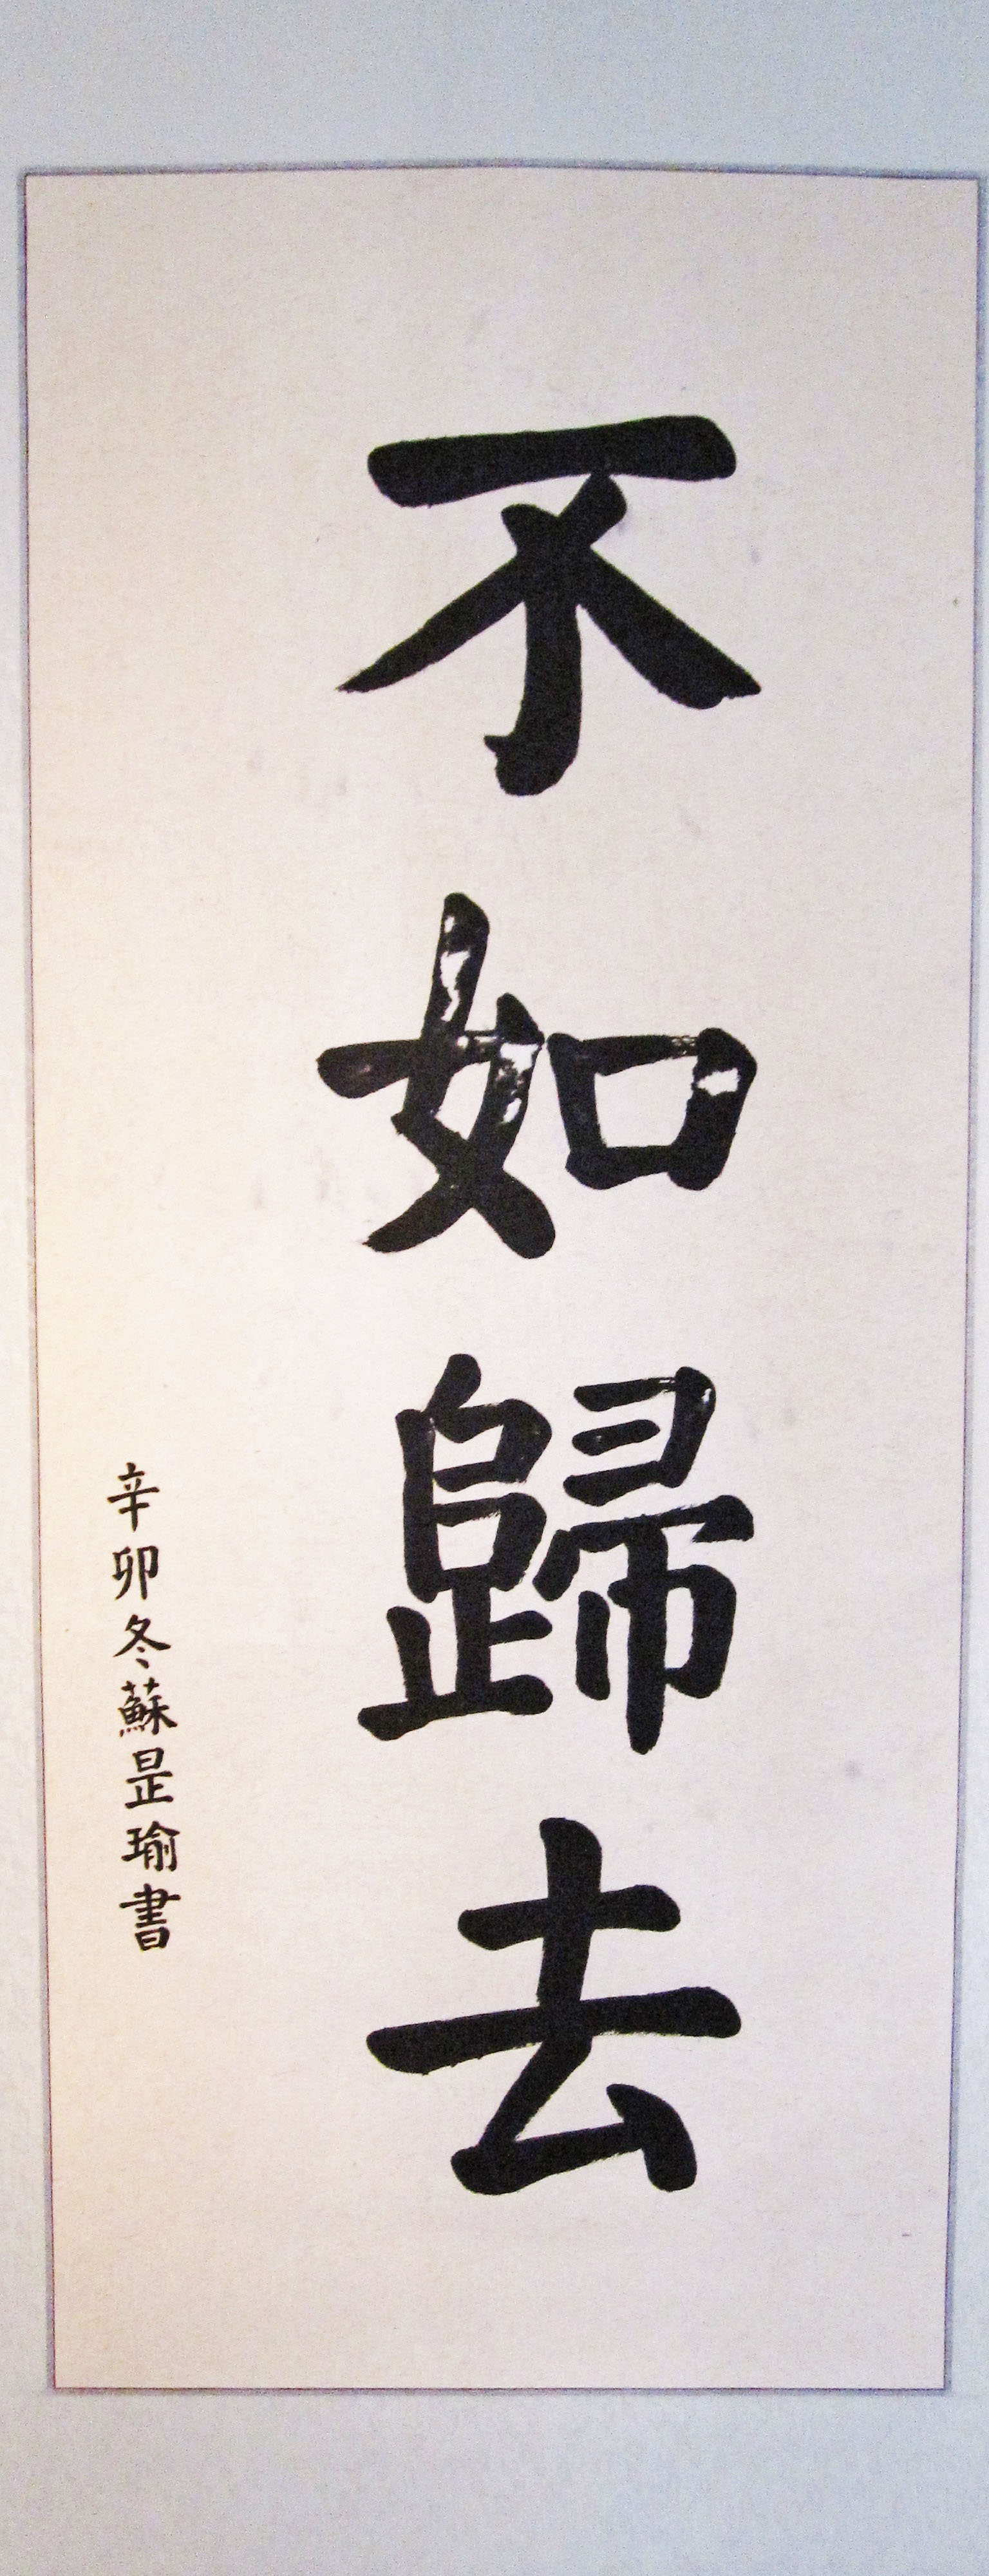 不如歸去
辛卯冬蘇昰瑜書